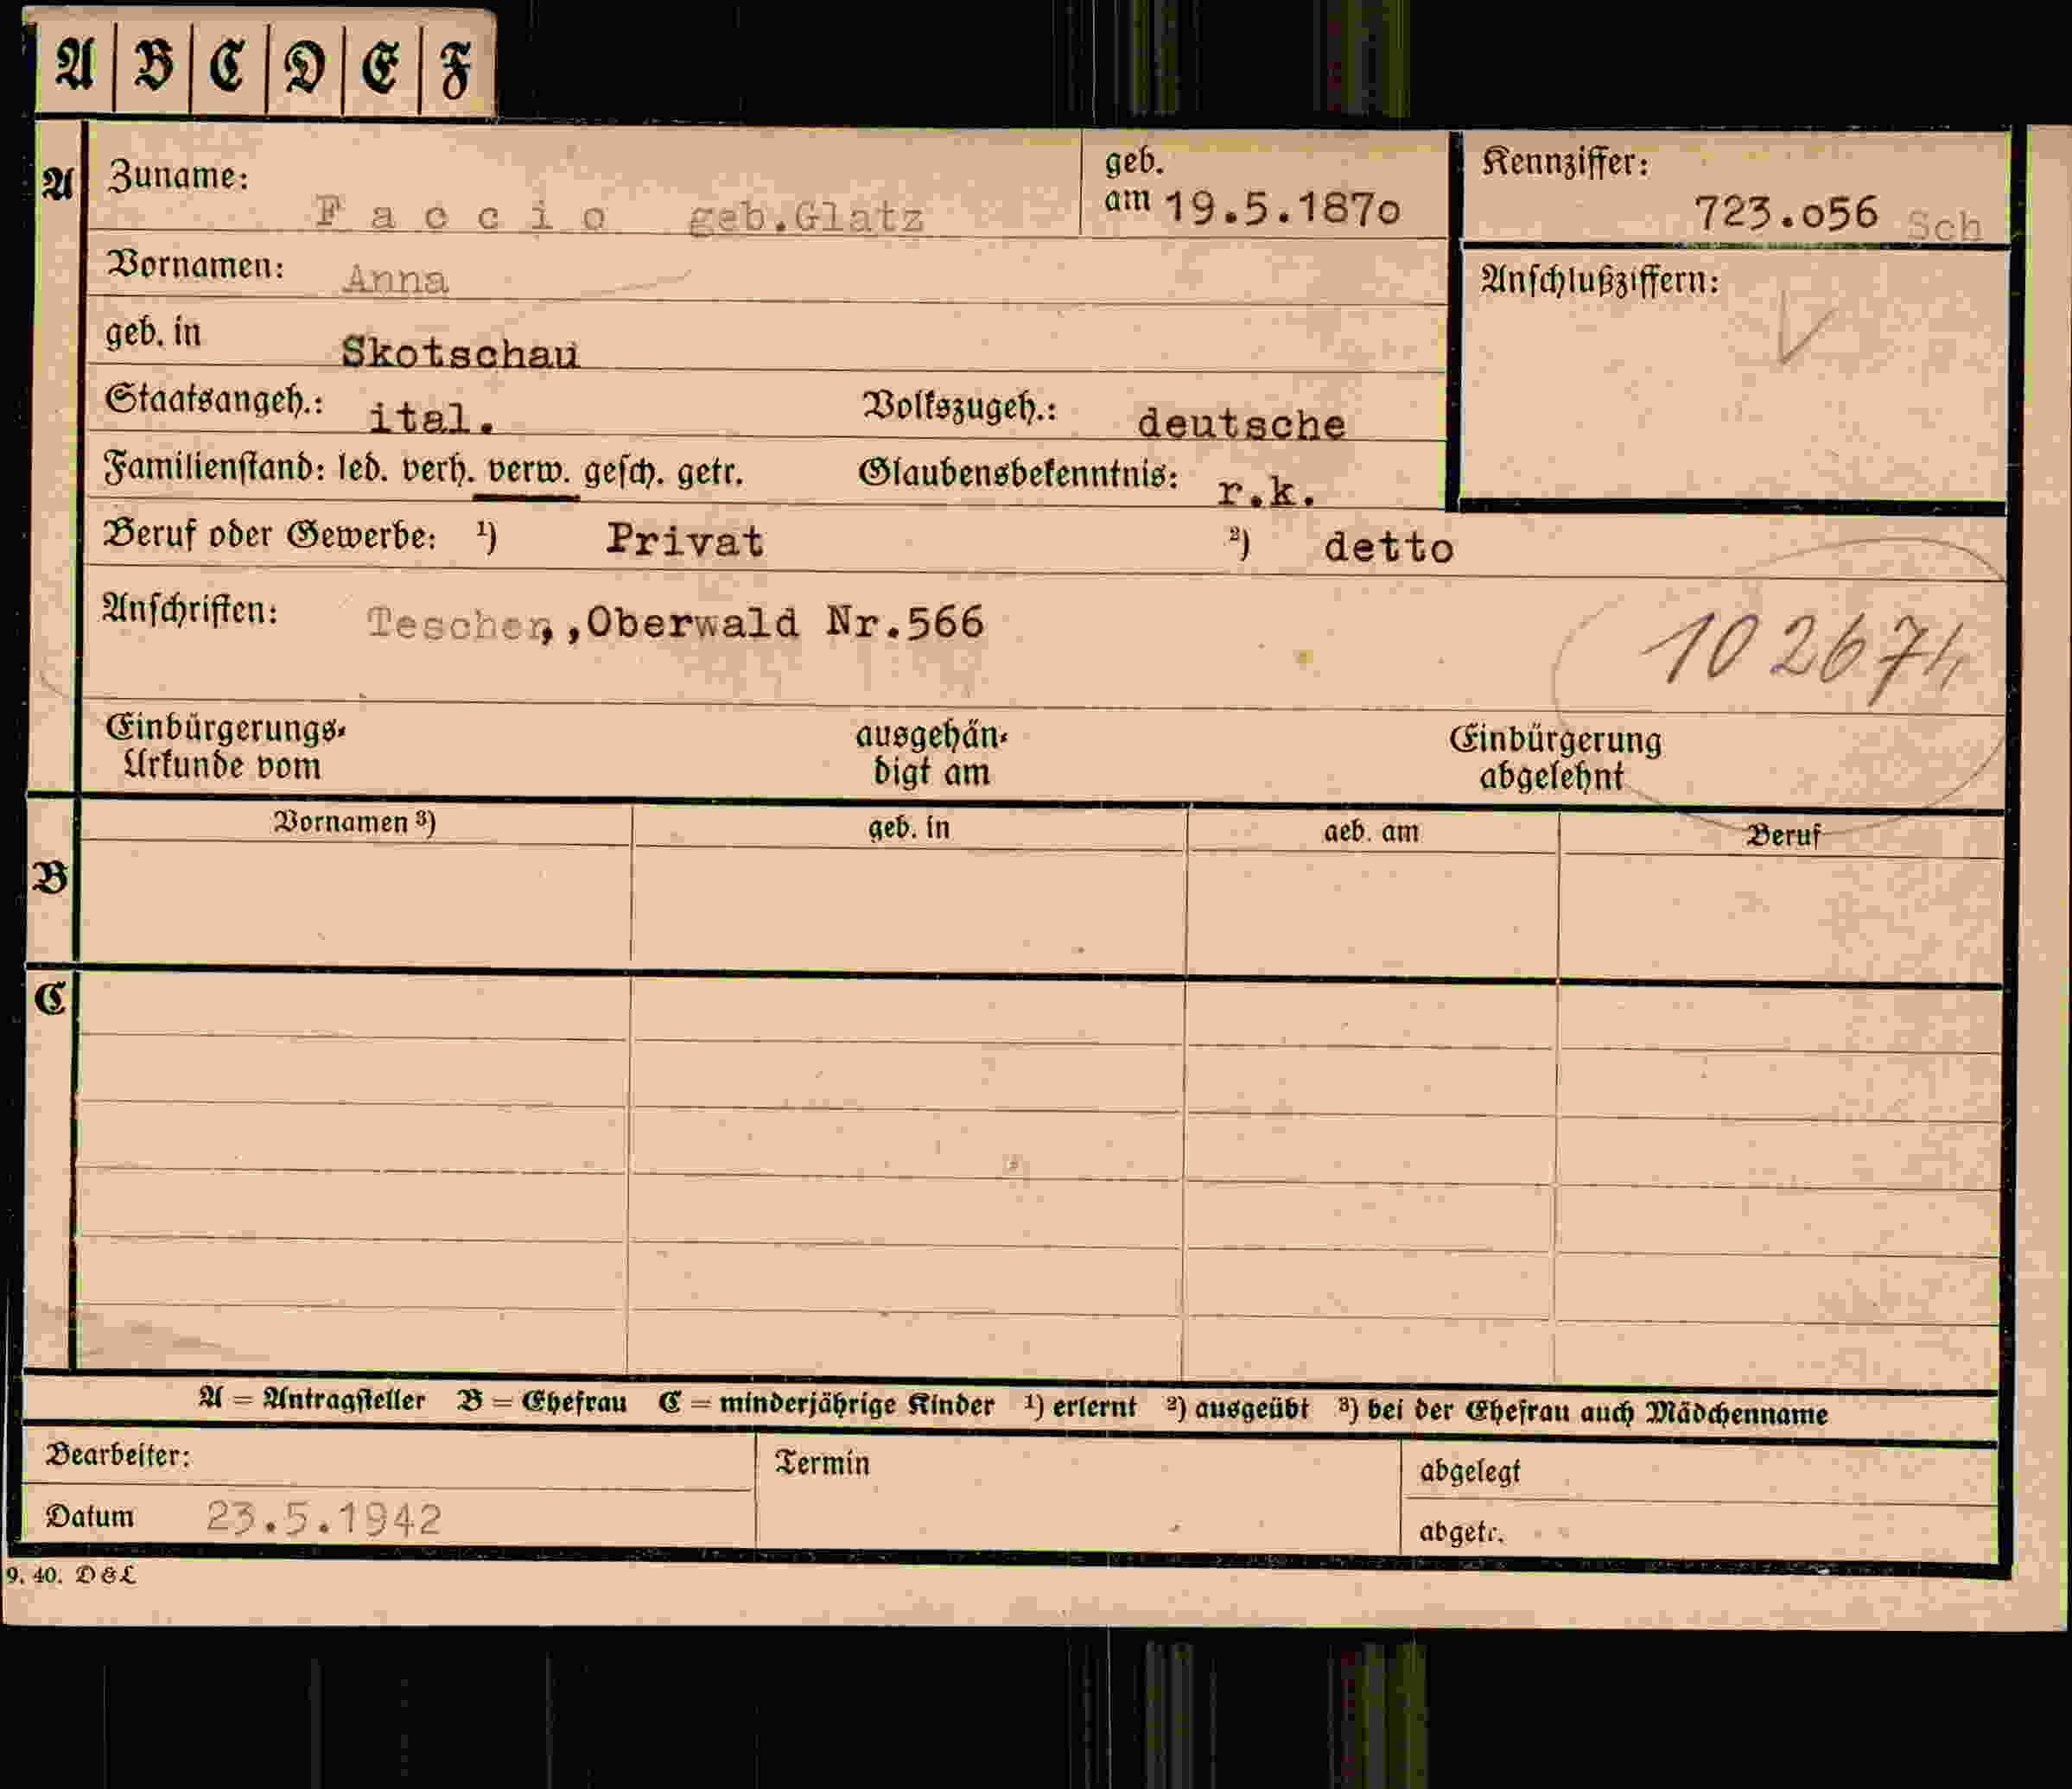 A B C D E F
A Zuname: Faccio geb.Glatz geb. am 19.5.187o Kennziffer: 723.o56 Sch
Vornamen: Anna Anschlußziffern:
geb. in Skotschau
Staatsangeh.: ital. Volkszugeh.: deutsche
Familienstand: led. verh. verw. gesch. getr. Glaubensbekenntnis: r.k.
Beruf oder Gewerbe: ¹) Privat ²) detto
Anschriften: Teschen,,Oberwald Nr.566
102674
Einbürgerungs- ausgehän- Einbürgerung
Urkunde vom digt am abgelehnt
Vornamen ³) geb. in geb. am Beruf
B
C
A = Antragsteller B = Ehefrau C = minderjährige Kinder ¹) erlernt ²) ausgeübt ³) bei der Ehefrau auch Mädchenname
Bearbeiter: Termin abgelegt
Datum 23.5.1942 abgetr.
9. 40. D&L